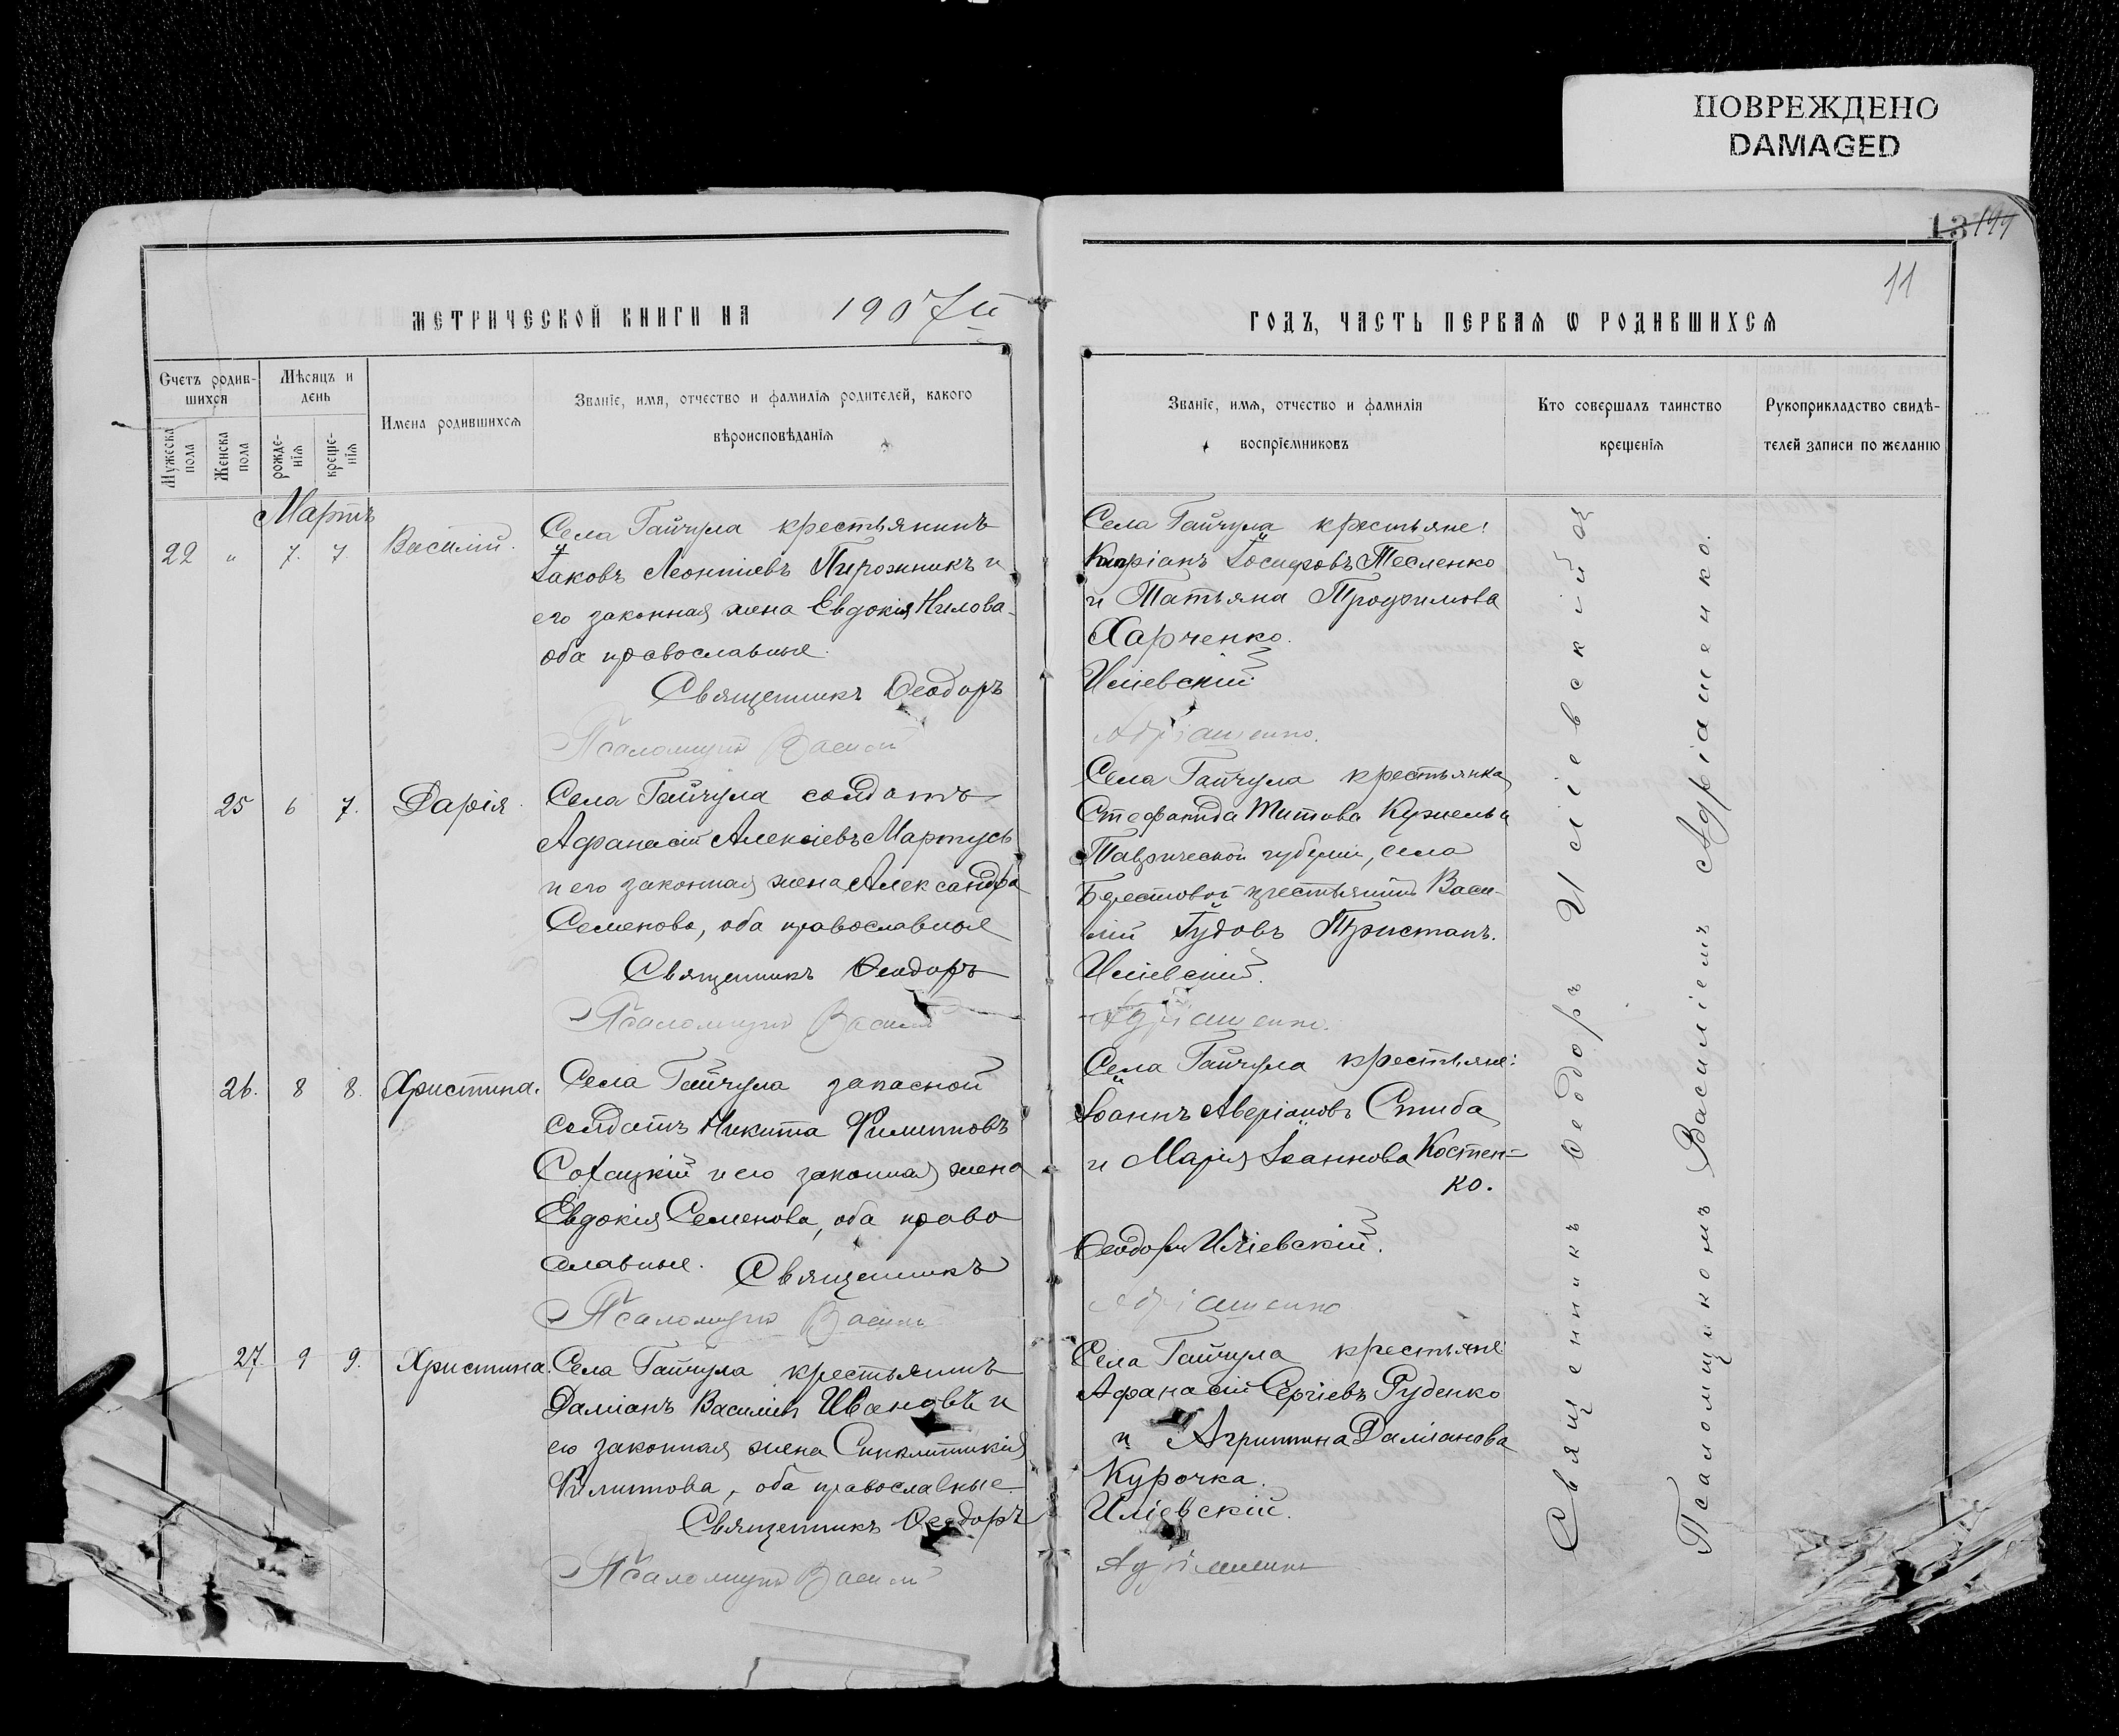 ПОВРЕЖДЕНО
DAMAGED
13
11
МЕТРИЧЕСКОЙ КНИГИ НА 1907й
ГОДЪ, ЧАСТЬ ПЕРВАЯ Ѡ РОДИВШИХСЯ
Счетъ родив-
шихся
Мужеска
пола
Женска
пола
Мѣсяцъ и
день
рожде-
нія
креще-
нія
Имена родившихся
Званіе, имя, отчество и фамилія родителей, какого
вѣроисповѣданія
Званіе, имя, отчество и фамилія
воспріемниковъ
Кто совершалъ таинство
крещенія
Рукоприкладство свидѣ-
телей записи по желанію
Мартъ
22 " 7. 7. Василій.
Села Гайчула крестьянинъ
Іаковъ Леонтіевъ Пирожникъ и
его законная жена Евдокія Нилова-
оба православные.
Священникъ Ѳеодоръ
Псаломщикъ Василій
Села Гайчула крестьяне:
Кипріанъ Іосифовъ Тесленко
и Татьяна Трофимова
Харченко.
Иліевскій
Адріашенко.
25 6 7. Дарія.
Села Гайчула солдатъ
Афанасій Алексіевъ Мартусь
и его законная жена Александра
Семенова, оба православные
Священникъ Ѳеодоръ
Псаломщикъ Василій
Села Гайчула крестьянка
Стефанида Титова Кужелъ и
Таврической губерніи, села
Берестовой крестьянинъ Васи-
лій Іудовъ Тристанъ.
Иліевскій.
Адріашенко.
26. 8 8. Христина.
Села Гайчула запасной
солдатъ Никита Филипповъ
Сотацкій и его законная жена
Евдокія Семенова, оба право
славные. Священникъ
Псаломщикъ Василій
Села Гайчула крестьяне:
Іоаннъ Аверіановъ Стиба
и Марія Іоаннова Костен=
ко.
Ѳеодоръ Иліевскій.
Адріашенко
27 9 9. Христина.
Села Гайчула крестьянинъ
Даміанъ Василіевъ Ивановъ и
его законная жена Синклитикія
Филиппова, оба православные
Священникъ Ѳеодоръ
Псаломщикъ Василій
Села Гайчула крестьяне
Афанасій Сергіевъ Руденко
и Агриппина Даміанова
Курочка.
Иліевскій.
Адріашенко
Священникъ Ѳеодоръ Иліевскій съ
Псаломщикомъ Василіемъ Адріашенко.